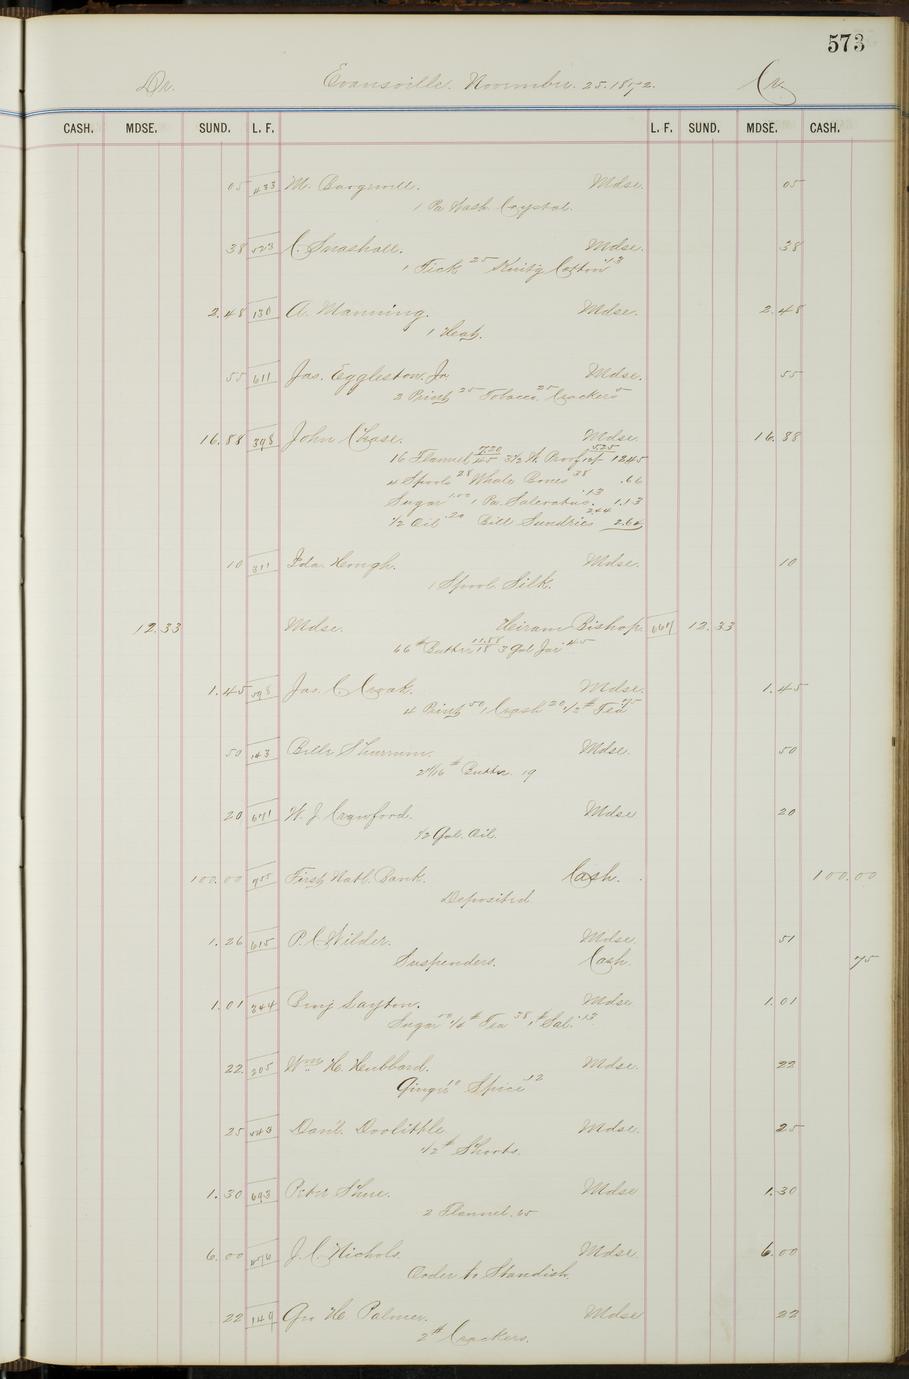 573
Dr. Evansville. November. 25. 1892. Cr.
CASH. MDSE. SUND. L. F. L. F. SUND. MDSE. CASH.
05 433 M. Mdse. 05
1 Pa Wash. Crystal.
38 523 C. Snashall. Mdse. 38
1 Tick 25 Knit'g Cotton 13
2.48 130 A. Manning. Mdse. 2.48
1
55 611 Jas. Eggleston. Jr Mdse. 55
2 Print 25 Tobacco 25 Crackers 5
16.88 398 John Chase. Mdse. 16.88
16 Flannel 7.20 45 3½ W. Proof 5.25 12.45
4 Spools 28 Whale Bones 38 .66
Sugar 1.00 1 Pa. Saleratus. .13 1.13
½ Oil .20 Bill Sundries 2.44 2.64
10 311 Ida. Hough. Mdse. 10
1 Spool Silk.
12.33 Mdse. Hiram Bishop. 12.33
66 # Butter 11.88 18 3 Gal Jar 45
1.45 598 Jas. C. Croak. Mdse. 1.45
4 Print 50 1 Crash 20 ½ # Tea 75
50 143 Mdse. 50
# Butter. 19
20 671 W. J. Crawford. Mdse 20
½ Gal. Oil.
100.00 First Natl. Bank. Cash. 100.00
Deposited
1.26 615 P. C. Wilder. Mdse. 51
Suspenders. Cash. 75
1.01 344 Benj Layton. Mdse 1.01
Sugar 50 ½ # Tea 38 1 # Sal. 13
22 205 Wm. H. Hubbard. Mdse. 22
Ginger 10 Spice 12
25 543 Danl. Doolittle Mdse. 25
½ # Shorts.
1.30 693 Peter Shue. Mdse 1.30
2 Flannel. 65
6.00 J. C. Nichols. Mdse 6.00
Order to Standish.
22 149 Geo H. Palmer. Mdse 22
2 # Crackers.